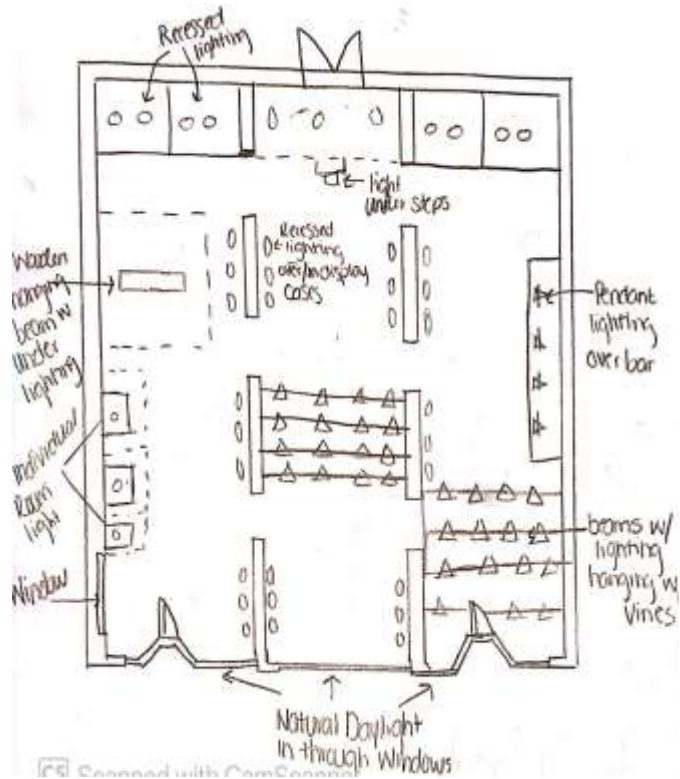 Recessed
lighting
light
under steps
Recessed
lighting
over/in display
cases
Wooden
hanging
beam w/
under
lighting
Pendant
lighting
over bar
Individual
Room
light
Window
beams w/
lighting
hanging w/
vines
Natural Daylight
in through Windows
CS Scanned with CamScanner